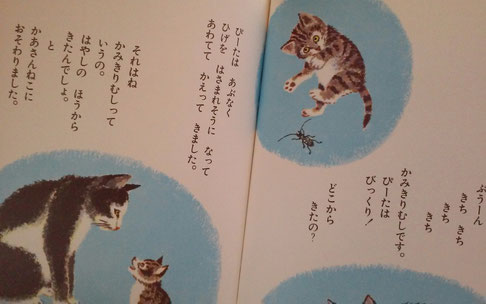 ぶうーん
きち きち
きち
きち
かみきりむしです。
ぴーたは
びっくり!
どこから
きたの?
ぴーたは あぶなく
ひげを はさまれそうに なって
あわてて かえって きました。
それはね
かみきりむしって
いうの。
はやしの ほうから
きたんでしょ。
と
かあさんねこに
おそわりました。